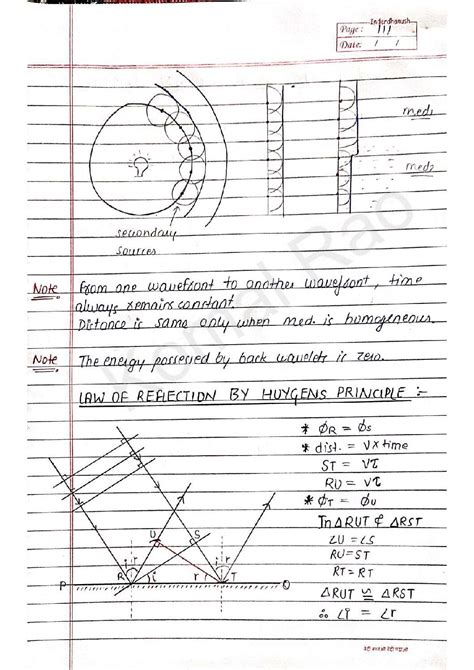 Inderdhanush
Page: 111
Date: / /
med1
med2
secondary
sources
Note From one wavefront to another wavefront, time
always remains constant
Distance is same only when med. is homogeneous.
Note The energy possessed by back wavelets is zero.
LAW OF REFLECTION BY HUYGENS PRINCIPLE :-
* ϕR = ϕS
* dist. = V×time
ST = Vτ
RU = Vτ
* ϕT = ϕU
In △RUT & △RST
∠U = ∠S
RU = ST
RT = RT
△RUT ≌ △RST
∴ ∠i = ∠r
U
S
i r
i r
P
R
i
r
T
Q
Komal Rao